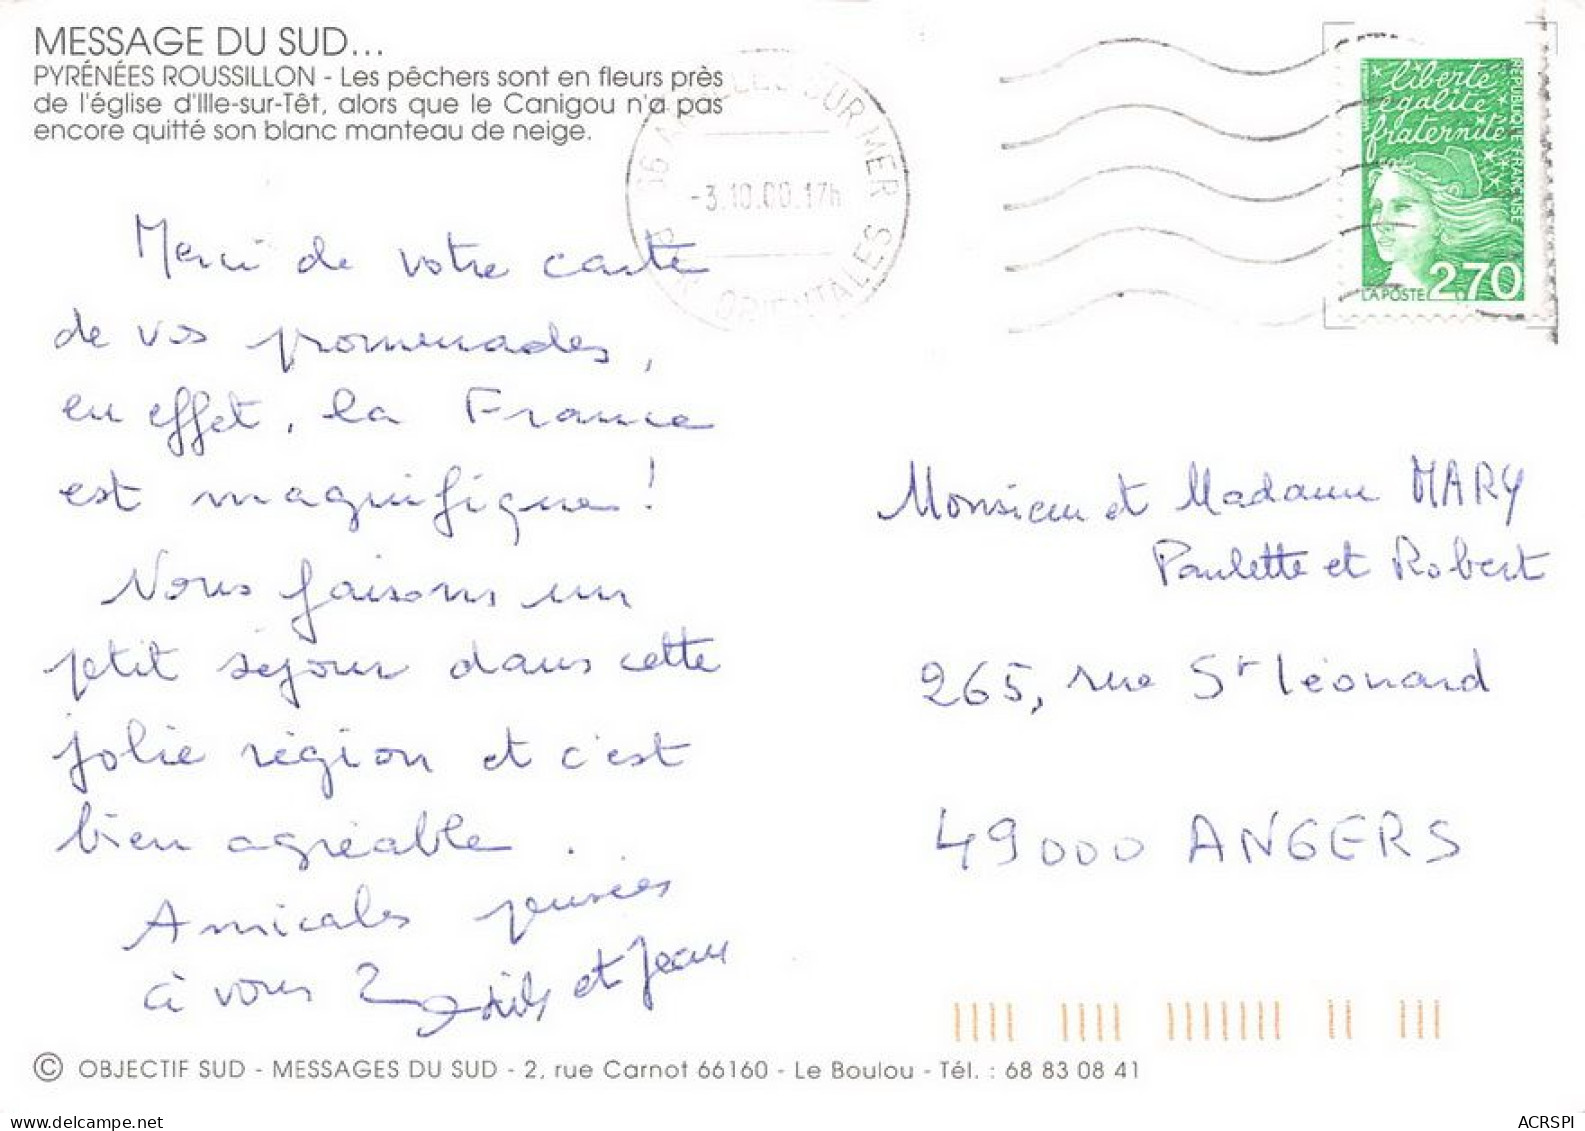 MESSAGE DU SUD...
PYRÉNÉES ROUSSILLON - Les pêchers sont en fleurs près
de l'église d'Ille-sur-Têt, alors que le Canigou n'a pas
encore quitté son blanc manteau de neige.
SUR MER
-3.10.00.17h
ORIENTALES
liberté
égalité
fraternité
RÉPUBLIQUE FRANÇAISE
LA POSTE 2,70
Merci de votre carte
de vos promenades,
en effet, la France
est magnifique !
Nous faisons un
petit séjour dans cette
jolie région et c'est
bien agréable.
Amicales pensées
à vous 2
et Jean
Monsieur et Madame MARY
Paulette et Robert
265, rue St Léonard
49000 ANGERS
© OBJECTIF SUD - MESSAGES DU SUD - 2, rue Carnot 66160 - Le Boulou - Tél. : 68 83 08 41
www.delcampe.net
ACRSPI